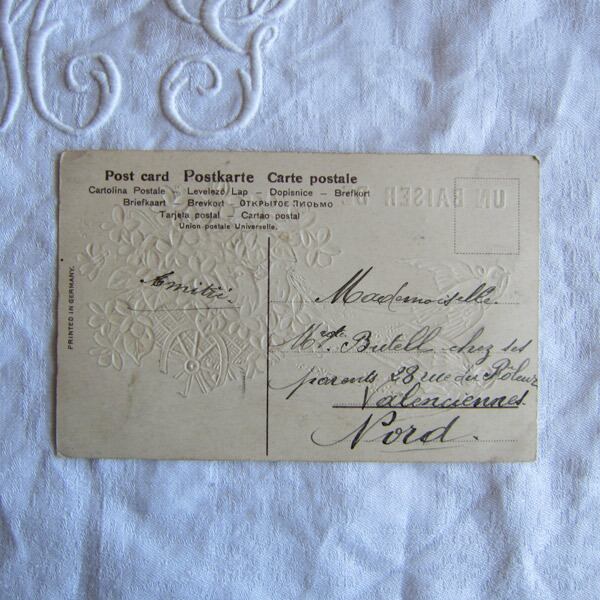 Post card Postkarte Carte postale
Cartolina Postale – Levelező Lap – Dopisnice – Brefkort
Briefkaart – Brevkort – Открытое письмо
Tarjeta postal – Cartao postal
Union postale Universelle.
UN BAISER D
PRINTED IN GERMANY.
Amitié.
Mademoiselle.
Butell chez ses
parents 28 rue du
Valenciennes.
Nord.